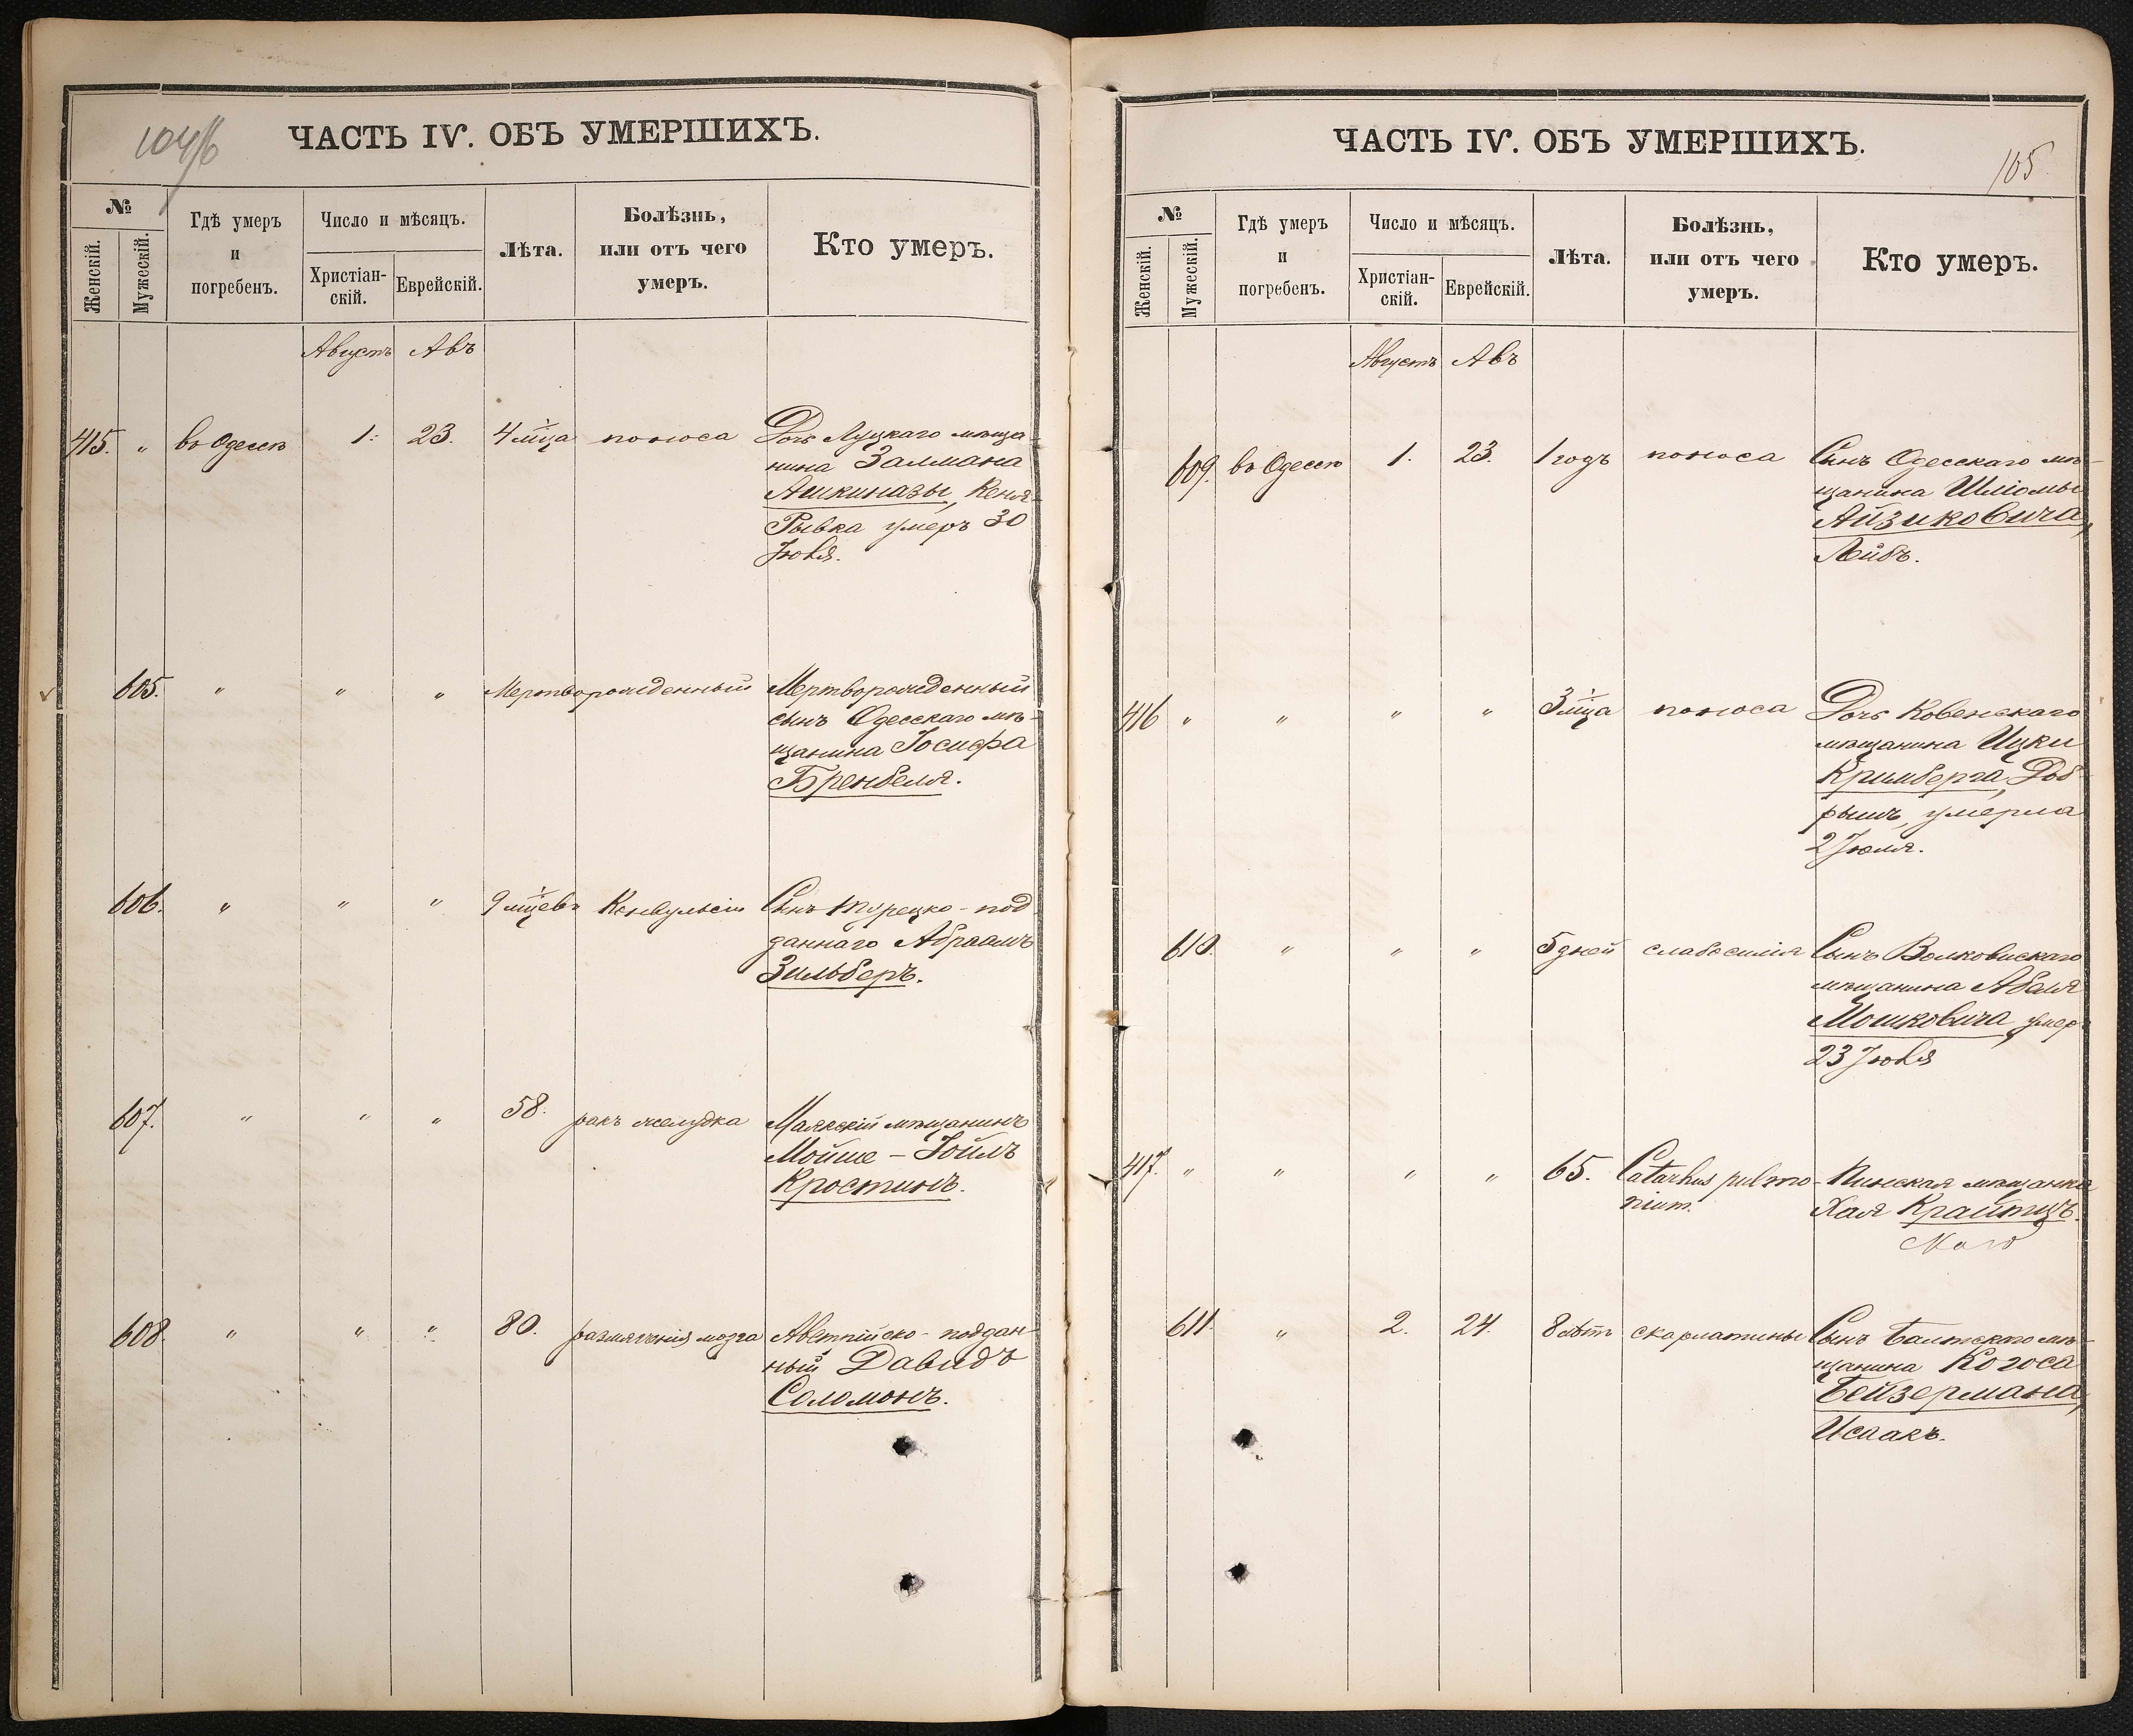 104/б
ЧАСТЬ IV. ОБЪ УМЕРШИХЪ.
№
Женскій.
Мужескій.
Гдѣ умеръ
и
погребенъ.
Число и мѣсяцъ.
Христіан-
скій.
Еврейскій.
Лѣта.
Болѣзнь,
или отъ чего
умеръ.
Кто умеръ.
Августъ Авъ
415. " въ Одессѣ 1. 23. 4 мѣца поноса Дочь Луцкаго мѣща-
нина Залмана
Ашкиназы, Кеня-
Рывка умеръ 30
Іюня.
605. " " " Мертворожденный Мертворожденный
сынъ Одесскаго мѣ-
щанина Іосифа
Бренбеля.
606. " " " 9 мѣцевъ Конвульсіи Сынъ турецко-под
даннаго Абраамъ
Зильберъ.
607. " " " 58. ракъ желудка Маякскій мѣщанинъ
Мойше-Іойлъ
Кростинъ.
608. " " " 80. размягченія мозга Австрійско-поддан-
ный Давидъ
Соломонъ.
ЧАСТЬ IV. ОБЪ УМЕРШИХЪ.
105
№
Женскій.
Мужескій.
Гдѣ умеръ
и
погребенъ.
Число и мѣсяцъ.
Христіан-
скій.
Еврейскій.
Лѣта.
Болѣзнь,
или отъ чего
умеръ.
Кто умеръ.
Августъ Авъ
609. въ Одессѣ 1. 23. 1 годъ поноса Сынъ Одесскаго мѣ-
щанина Шліомы
Айзиковича,
Лейбъ.
416 " " " " 3 мѣца поноса Дочь Ковенскаго
мѣщанина Ицки
Кримберга, Доб-
рышъ, умерла
2 Іюля.
610. " " " 5 дней слабосилія Сынъ Волковискаго
мѣщанина Абеля
Мошковича умер
23 Іюня
417. " " " " 65. Catarhus pulmo- Пинская мѣщанка
nium. Хая Крайтцъ.
611. " 2. 24. 8 лѣтъ скарлатины Сынъ Балтскаго мѣ-
щанина Когоса
Бейзермана,
Исаакъ.